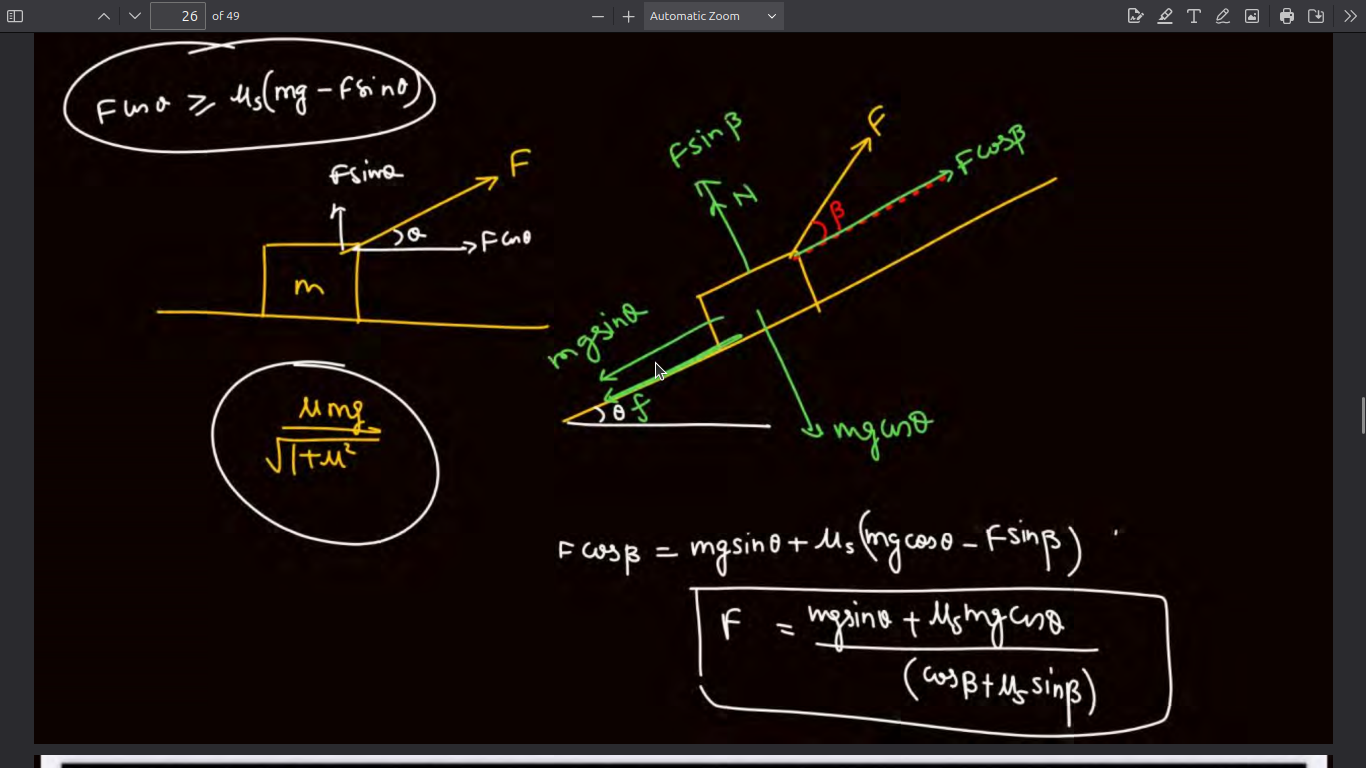 26 of 49
Automatic Zoom
F cosθ ⩾ μs(mg - Fsinθ)
Fsinθ
F
θ
Fcosθ
m
μmg
√1+μ²
Fsinβ
N
F
Fcosβ
β
mgsinθ
θ
f
mgcosθ
F cosβ = mgsinθ + μs(mgcosθ - Fsinβ)
F = mgsinθ + μsmgcosθ
(cosβ + μs sinβ)